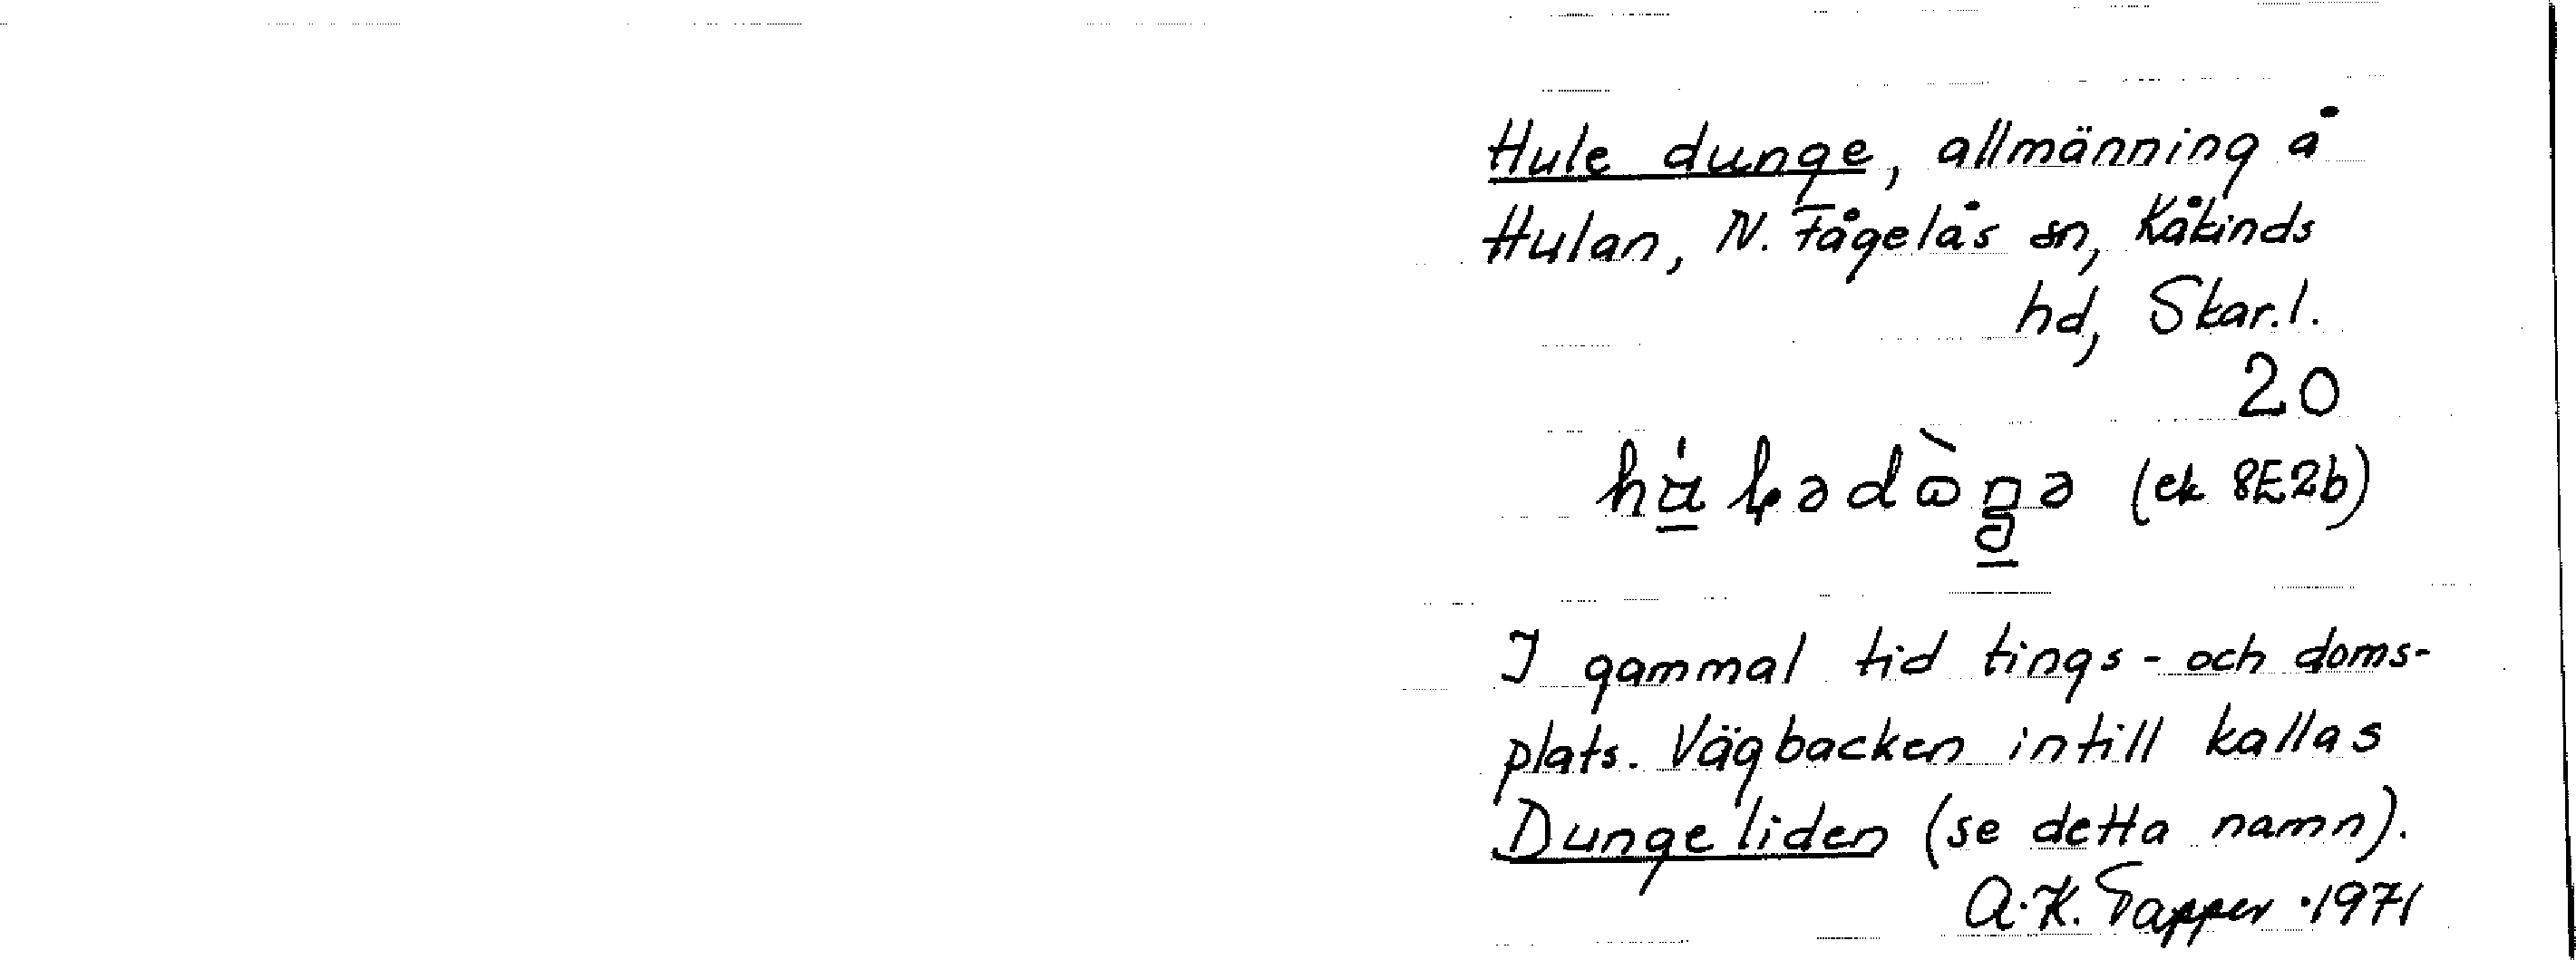 Hule dunge, allmänning å
Hulan, N. Fågelås sn, Kåkinds
hd, Skar.l.
20
(ek 8E2b)
I gammal tid tings- och doms-
plats. Vägbacken intill kallas
Dungeliden (se detta namn).
A.K. Tapper · 1971